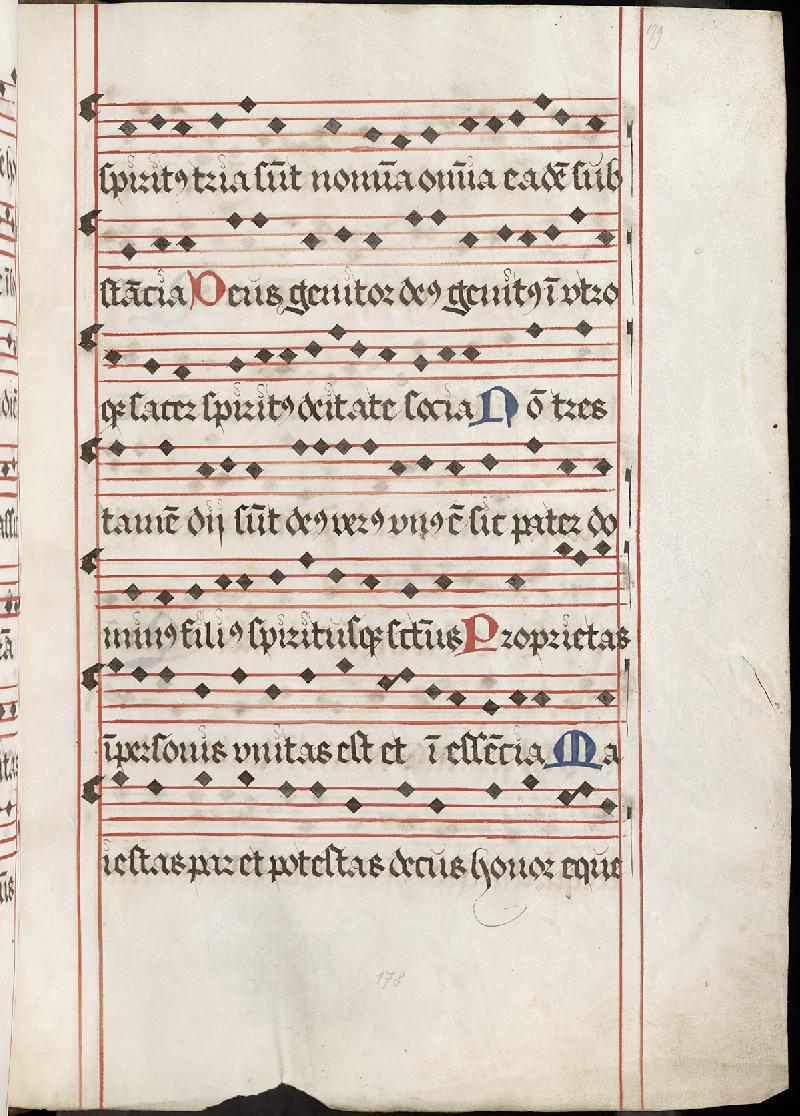 179
spiritꝯ tria sūt nomīa om̄ia eadē sub
stācia Deus genitor deꝯ genitꝯ ī vtro
qꝫ sacer spiritꝯ deitate socia Nō tres
tamē dij sūt deꝯ verꝯ vnꝯ ē sic pater do
minꝯ filiꝯ spiritusqꝫ sct̄us Proprietas
īpersonis vnitas est et ī essēcia Ma
iestas par et potestas decus honor eque
178